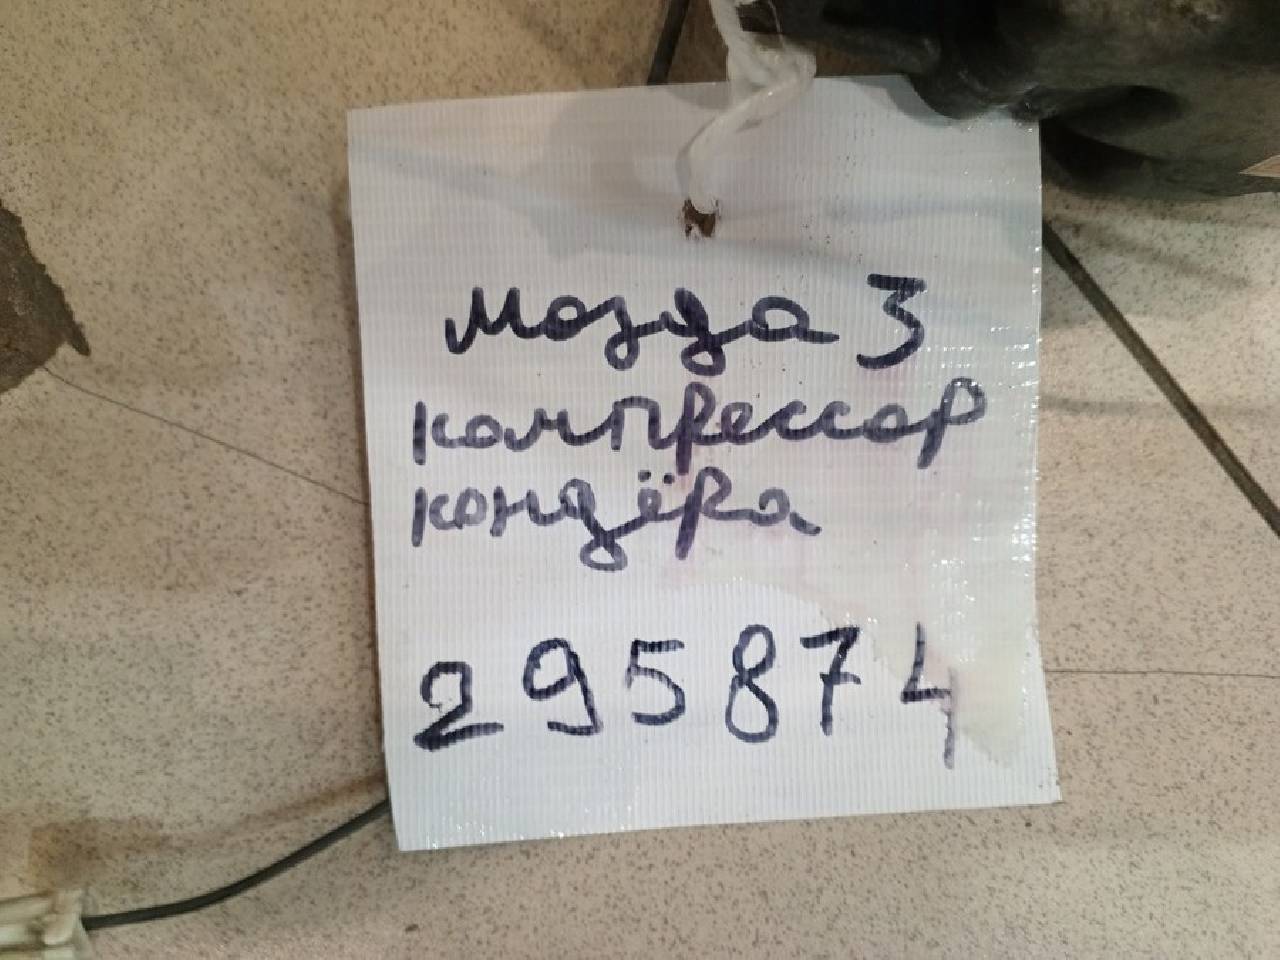 Мозда 3
компрессор
кондёра
295874